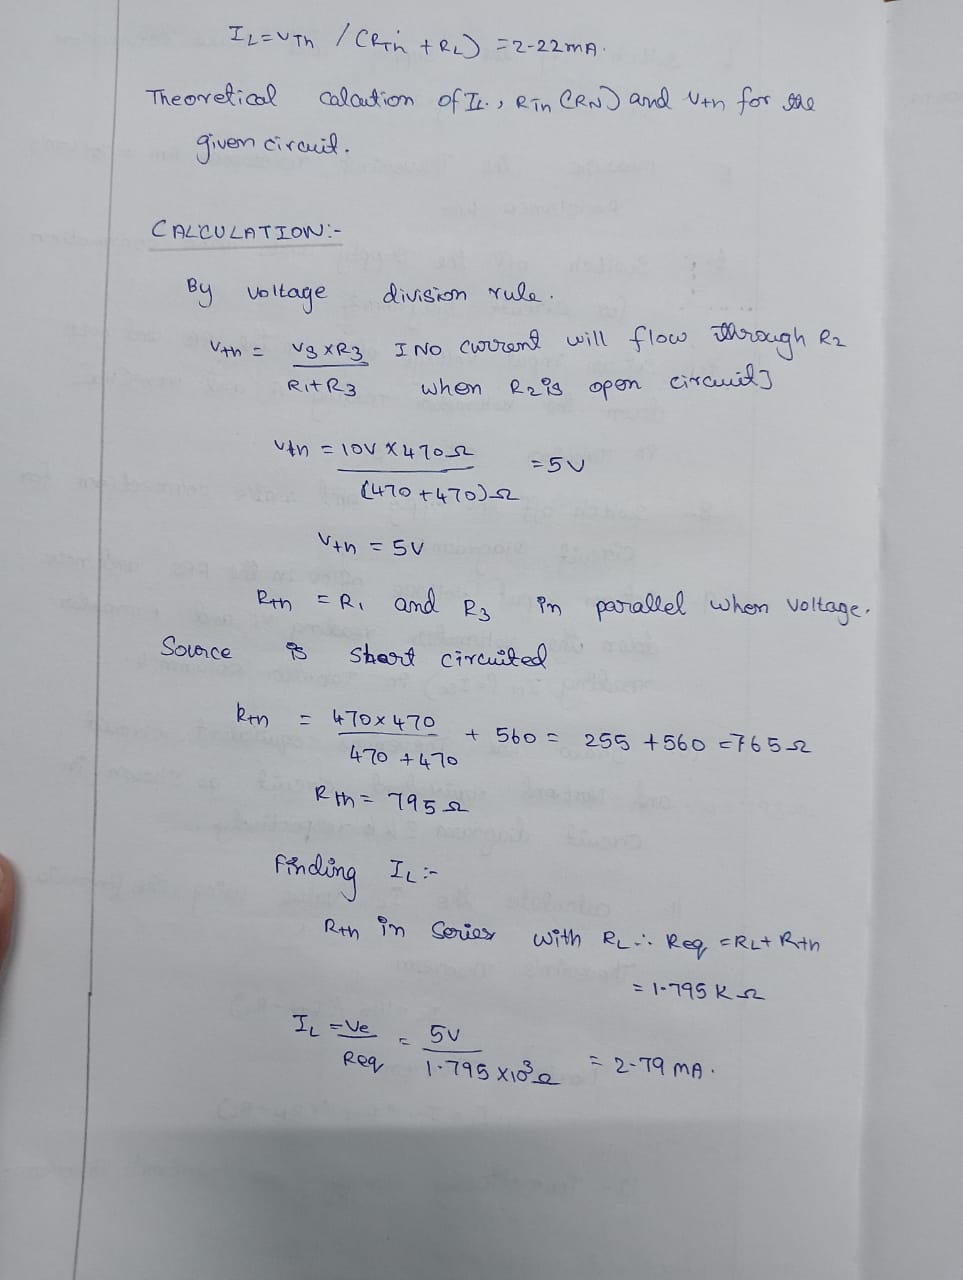 IL=VTh / (RTh + RL) =2-22mA.
Theoretical calcution of IL., RTh (RN) and Vth for the
given circuit.
CALCULATION:-
By voltage division rule.
Vth = VsxR3 [No current will flow through R2
R1+R3 when R2is open circuit]
Vth = 10V x 470Ω =5V
(470+470)Ω
Vth = 5V
Rth = R1 and R3 in parallel when voltage.
Source is short circuited
Rth = 470x470 + 560 = 255 +560 =765Ω
470 +470
Rth = 795Ω
Finding IL:-
Rth in Series with RL ∴ Req =RL+Rth
= 1.795KΩ
IL = Ve = 5V = 2.79 mA.
Req 1.795 x10³Ω